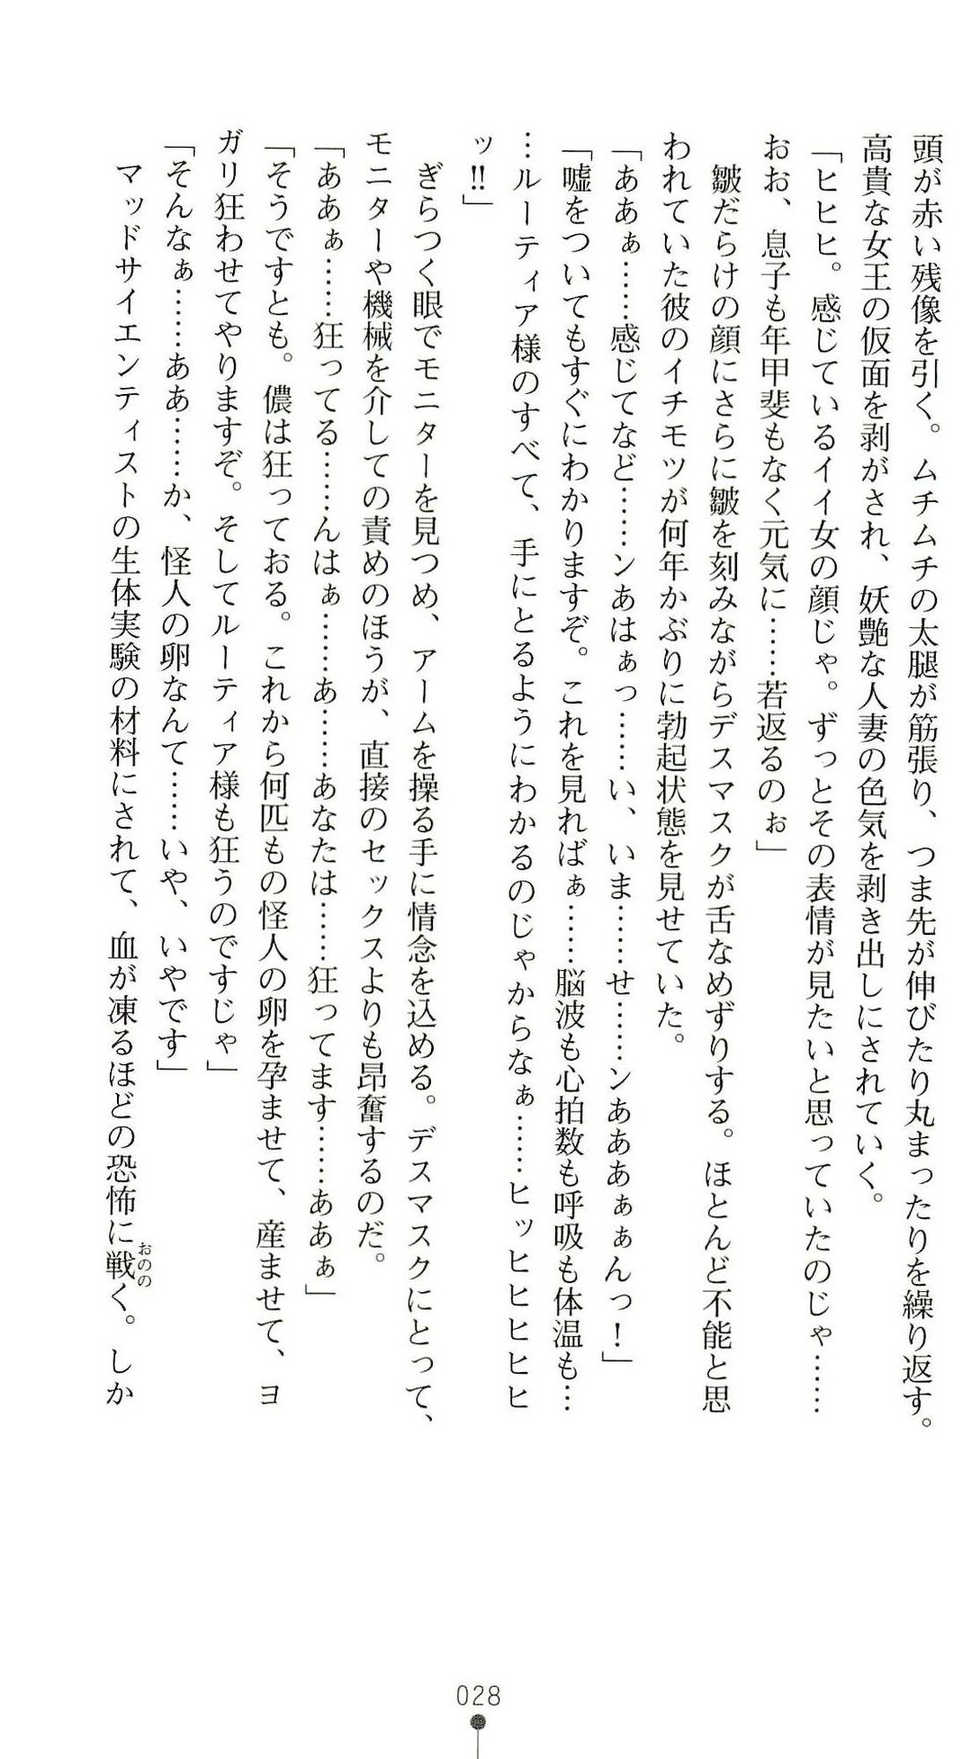 頭が赤い残像を引く。ムチムチの太腿が筋張り、つま先が伸びたり丸まったりを繰り返す。
高貴な女王の仮面を剥がされ、妖艶な人妻の色気を剥き出しにされていく。
「ヒヒヒ。感じているイイ女の顔じゃ。ずっとその表情が見たいと思っていたのじゃ……
おお、息子も年甲斐もなく元気に……若返るのぉ」
皺だらけの顔にさらに皺を刻みながらデスマスクが舌なめずりする。ほとんど不能と思
われていた彼のイチモツが何年かぶりに勃起状態を見せていた。
「ああぁ……感じてなど……ンあはぁっ……い、いま……せ……ンあああぁぁんっ！」
「嘘をついてもすぐにわかりますぞ。これを見ればぁ……脳波も心拍数も呼吸も体温も…
…ルーティア様のすべて、手にとるようにわかるのじゃからなぁ……ヒッヒヒヒヒヒ
ッ!!」
ぎらつく眼でモニターを見つめ、アームを操る手に情念を込める。デスマスクにとって、
モニターや機械を介しての責めのほうが、直接のセックスよりも昂奮するのだ。
「ああぁ……狂ってる……んはぁ……あ……あなたは……狂ってます……ああぁ」
「そうですとも。儂は狂っておる。これから何匹もの怪人の卵を孕ませて、産ませて、ヨ
ガリ狂わせてやりますぞ。そしてルーティア様も狂うのですじゃ」
「そんなぁ……ああ……か、怪人の卵なんて……いや、いやです」
マッドサイエンティストの生体実験の材料にされて、血が凍るほどの恐怖に戦く。しか
おのの
028